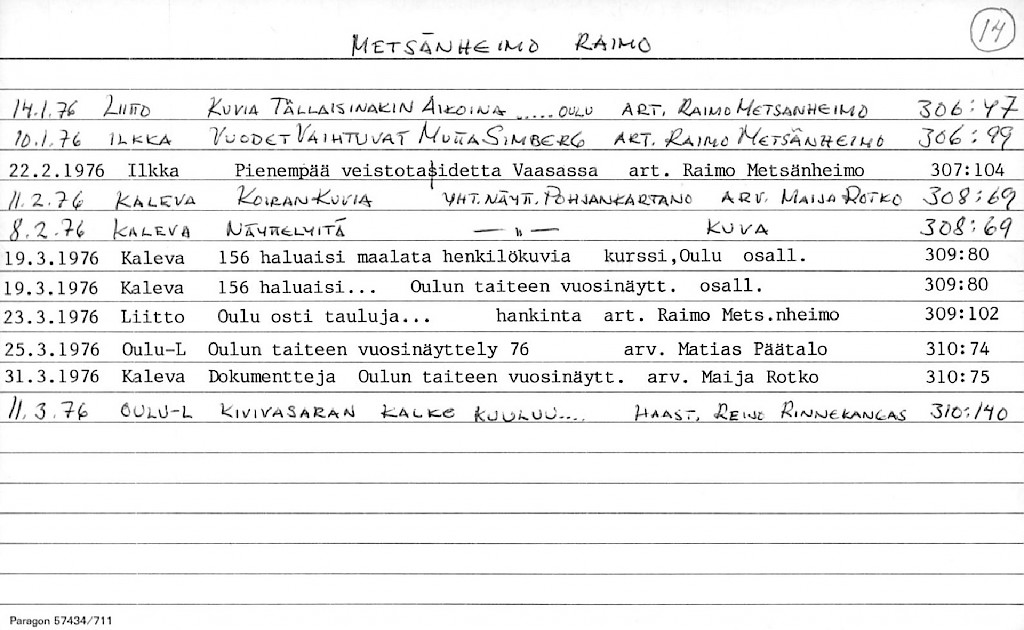 METSÄNHEIMO RAIMO 14
14.1.76 LIITTO KUVIA TÄLLAISINAKIN AIKOINA ..... OULU ART. RAIMO METSÄNHEIMO 306:47
10.1.76 ILKKA VUODET VAIHTUVAT MUTTA SIMBERG ART. RAIMO METSÄNHEIMO 306:99
22.2.1976 Ilkka Pienempää veistotasidetta Vaasassa art. Raimo Metsänheimo 307:104
11.2.76 KALEVA KOIRAN KUVIA YHT. NÄYTT. POHJANKARTANO ARV. MAIJA ROTKO 308:69
8.2.76 KALEVA NÄYTTELYITÄ — " — KUVA 308:69
19.3.1976 Kaleva 156 haluaisi maalata henkilökuvia kurssi,Oulu osall. 309:80
19.3.1976 Kaleva 156 haluaisi... Oulun taiteen vuosinäytt. osall. 309:80
23.3.1976 Liitto Oulu osti tauluja... hankinta art. Raimo Mets.nheimo 309:102
25.3.1976 Oulu-L Oulun taiteen vuosinäyttely 76 arv. Matias Päätalo 310:74
31.3.1976 Kaleva Dokumentteja Oulun taiteen vuosinäytt. arv. Maija Rotko 310:75
11.3.76 OULU-L KIVIVASARAN KALKE KUULUU.... HAAST. REINO RINNEKANGAS 310:140
Paragon 57434/711